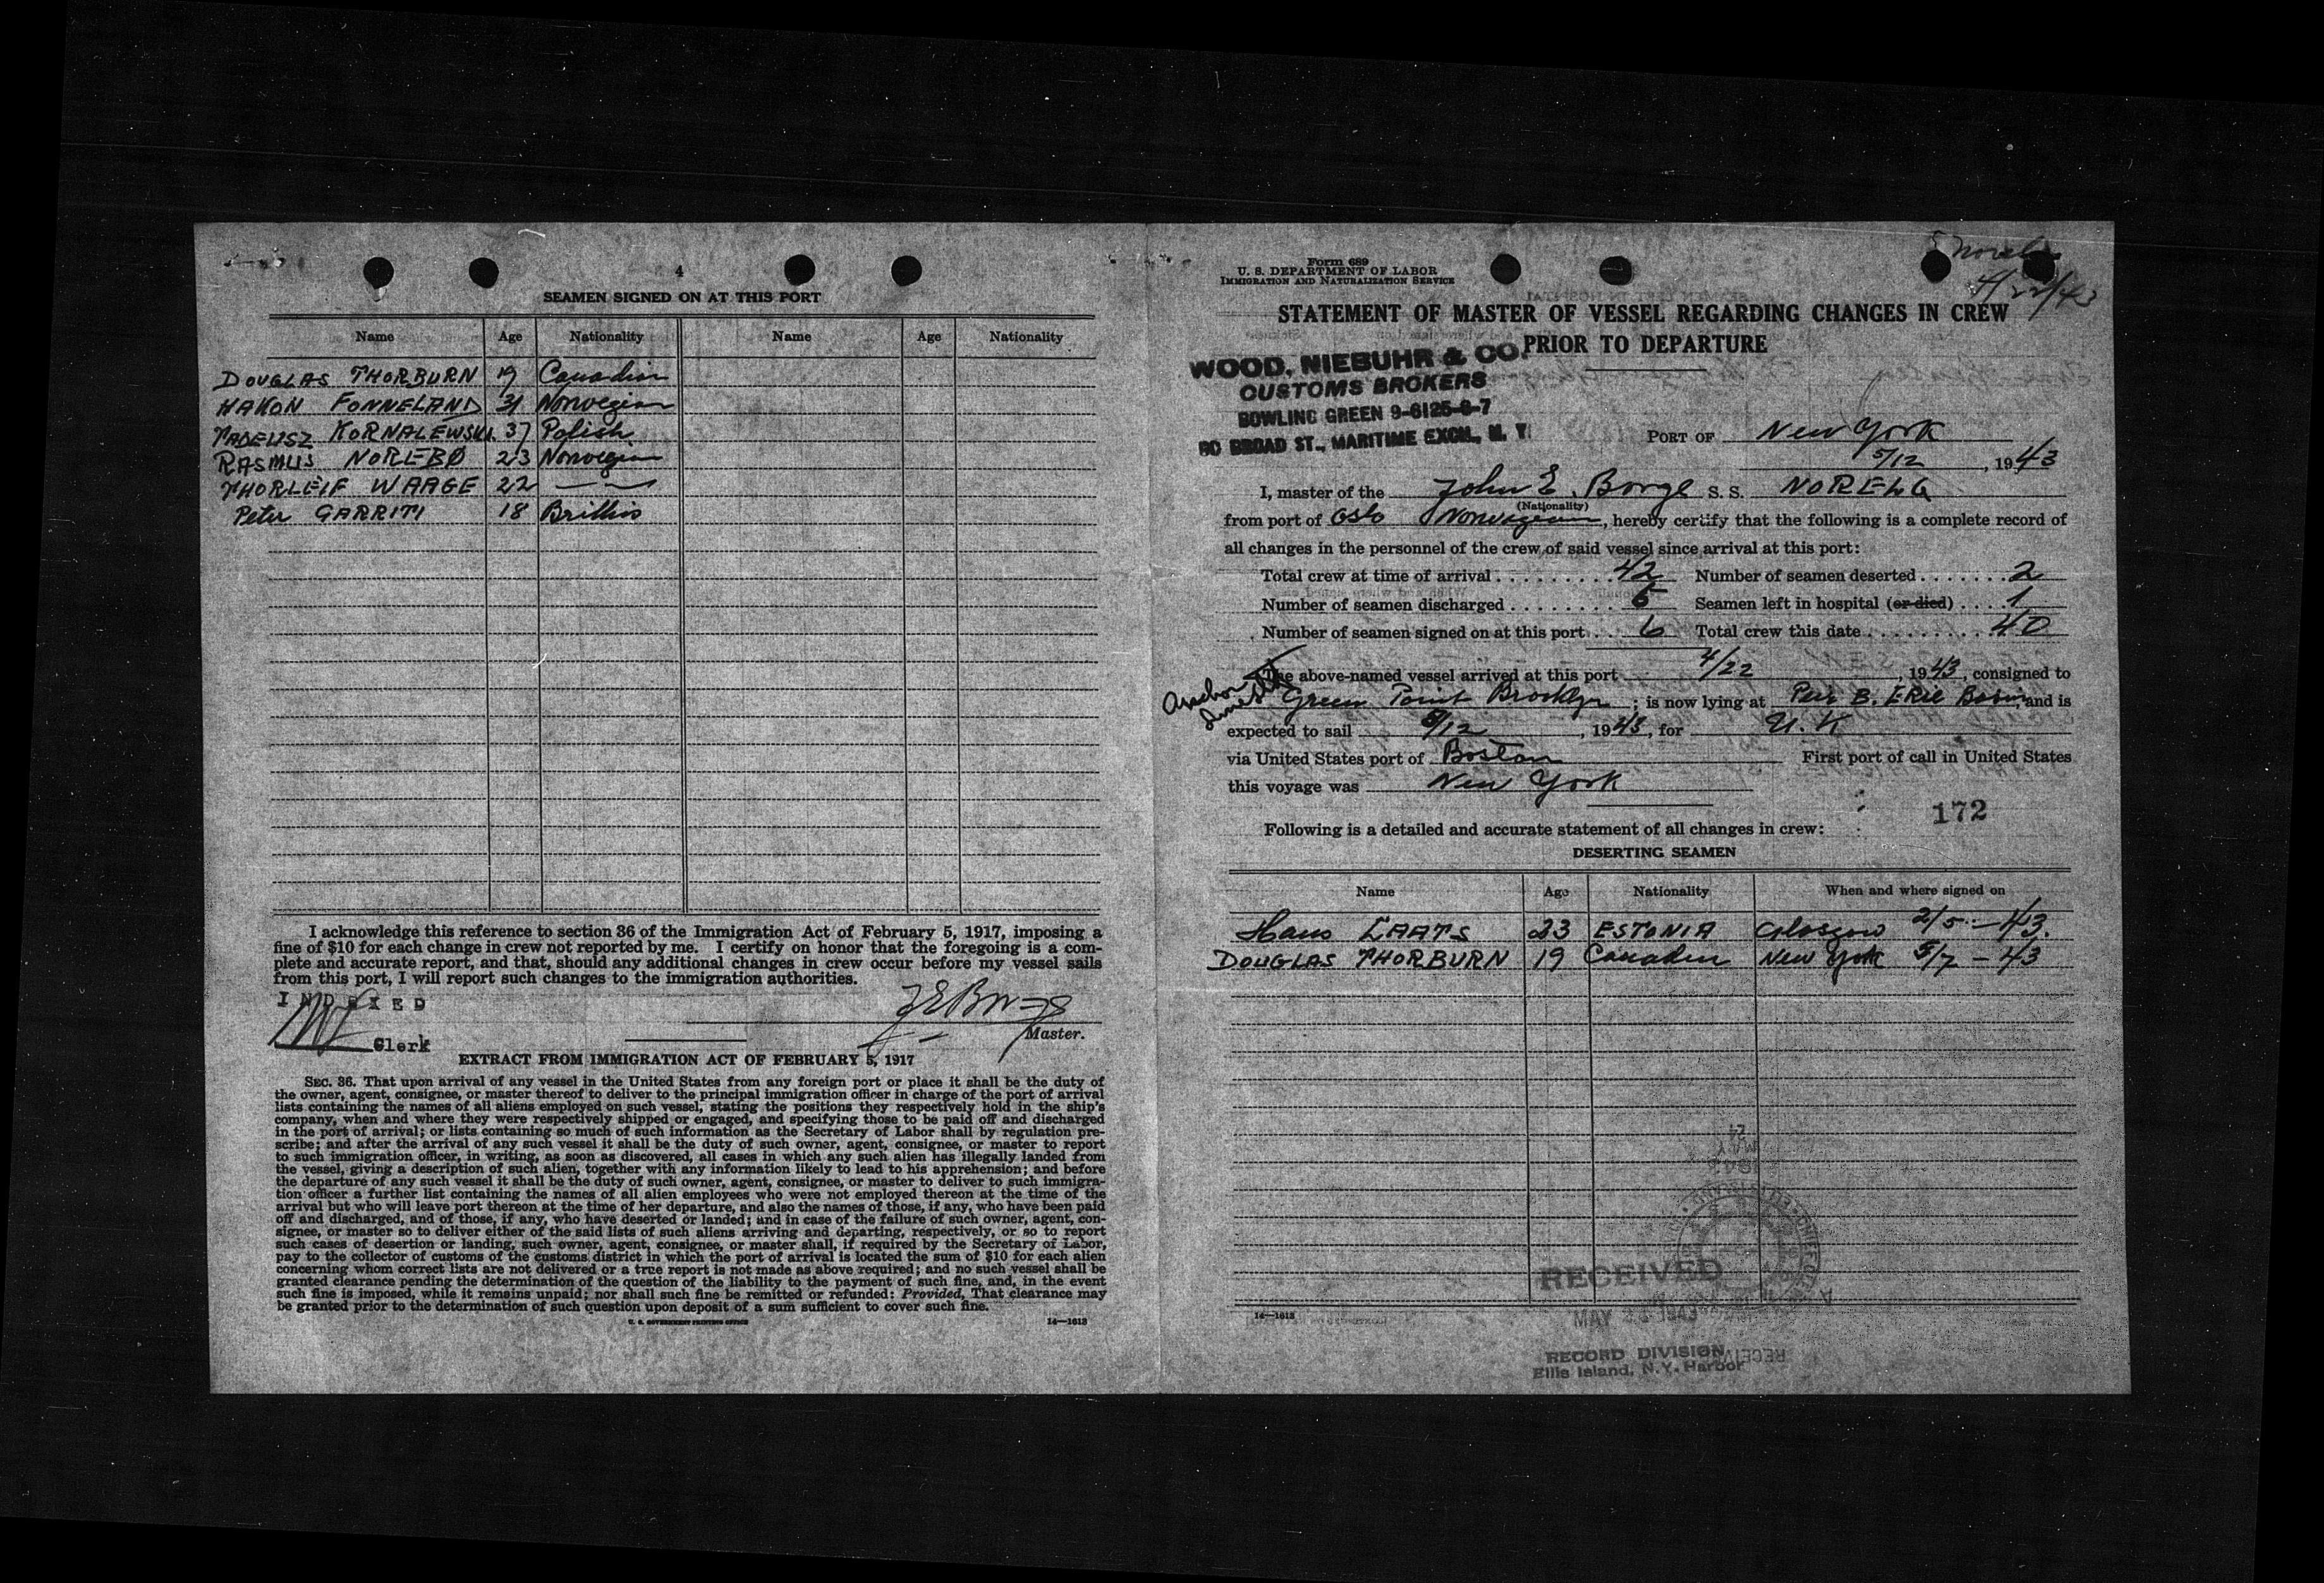 4
SEAMEN SIGNED ON AT THIS PORT
Name Age Nationality Name Age Nationality
DOUGLAS THORBURN 19 Canadian
HAKON FONNELAND 31 Norwegian
TADEUSZ KORNALEWSKI. 37 Polish
RASMUS NOREBØ 23 Norwegian
THORLEIF WAAGE 22 — " —
Peter GARRITI 18 Brittis
I acknowledge this reference to section 36 of the Immigration Act of February 5, 1917, imposing a
fine of $10 for each change in crew not reported by me. I certify on honor that the foregoing is a com-
plete and accurate report, and that, should any additional changes in crew occur before my vessel sails
from this port, I will report such changes to the immigration authorities.
INDEXED
Clerk
Master.
EXTRACT FROM IMMIGRATION ACT OF FEBRUARY 5, 1917
SEC. 36. That upon arrival of any vessel in the United States from any foreign port or place it shall be the duty of
the owner, agent, consignee, or master thereof to deliver to the principal immigration officer in charge of the port of arrival
lists containing the names of all aliens employed on such vessel, stating the positions they respectively hold in the ship's
company, when and where they were respectively shipped or engaged, and specifying those to be paid off and discharged
in the port of arrival; or lists containing so much of such information as the Secretary of Labor shall by regulation pre-
scribe; and after the arrival of any such vessel it shall be the duty of such owner, agent, consignee, or master to report
to such immigration officer, in writing, as soon as discovered, all cases in which any such alien has illegally landed from
the vessel, giving a description of such alien, together with any information likely to lead to his apprehension; and before
the departure of any such vessel it shall be the duty of such owner, agent, consignee, or master to deliver to such immigra-
tion officer a further list containing the names of all alien employees who were not employed thereon at the time of the
arrival but who will leave port thereon at the time of her departure, and also the names of those, if any, who have been paid
off and discharged, and of those, if any, who have deserted or landed; and in case of the failure of such owner, agent, con-
signee, or master so to deliver either of the said lists of such aliens arriving and departing, respectively, or so to report
such cases of desertion or landing, such owner, agent, consignee, or master shall, if required by the Secretary of Labor,
pay to the collector of customs of the customs district in which the port of arrival is located the sum of $10 for each alien
concerning whom correct lists are not delivered or a true report is not made as above required; and no such vessel shall be
granted clearance pending the determination of the question of the liability to the payment of such fine, and, in the event
such fine is imposed, while it remains unpaid; nor shall such fine be remitted or refunded: Provided, That clearance may
be granted prior to the determination of such question upon deposit of a sum sufficient to cover such fine.
U. S. GOVERNMENT PRINTING OFFICE 14—1613
4/22/43
Form 689
U. S. DEPARTMENT OF LABOR
IMMIGRATION AND NATURALIZATION SERVICE
STATEMENT OF MASTER OF VESSEL REGARDING CHANGES IN CREW
PRIOR TO DEPARTURE
WOOD, NIEBUHR & CO.
CUSTOMS BROKERS
BOWLING GREEN 9-6125-6-7
80 BROAD ST., MARITIME EXCH., N. Y.
PORT OF New York
5/12, 1943
I, master of the John E. Borge S. S. NORELG
(Nationality)
from port of Oslo Norwegian, hereby certify that the following is a complete record of
all changes in the personnel of the crew of said vessel since arrival at this port:
Total crew at time of arrival 42 Number of seamen deserted 2
Number of seamen discharged 5 Seamen left in hospital (or died) 1
Number of seamen signed on at this port 6 Total crew this date 40
The above-named vessel arrived at this port 4/22, 1943, consigned to
Green Point Brooklyn; is now lying at Pier B. Erie Basin, and is
expected to sail 5/12, 1943, for U.K
via United States port of Boston First port of call in United States
this voyage was New York
172
Following is a detailed and accurate statement of all changes in crew:
DESERTING SEAMEN
Name Age Nationality When and where signed on
Hans LAATS 23 ESTONIA Glasgow 2/5 - 43.
DOUGLAS THORBURN 19 Canadien New York 5/7 - 43
RECEIVED
MAY 1943
14—1613
RECORD DIVISION
Ellis Island, N.Y. Harbor